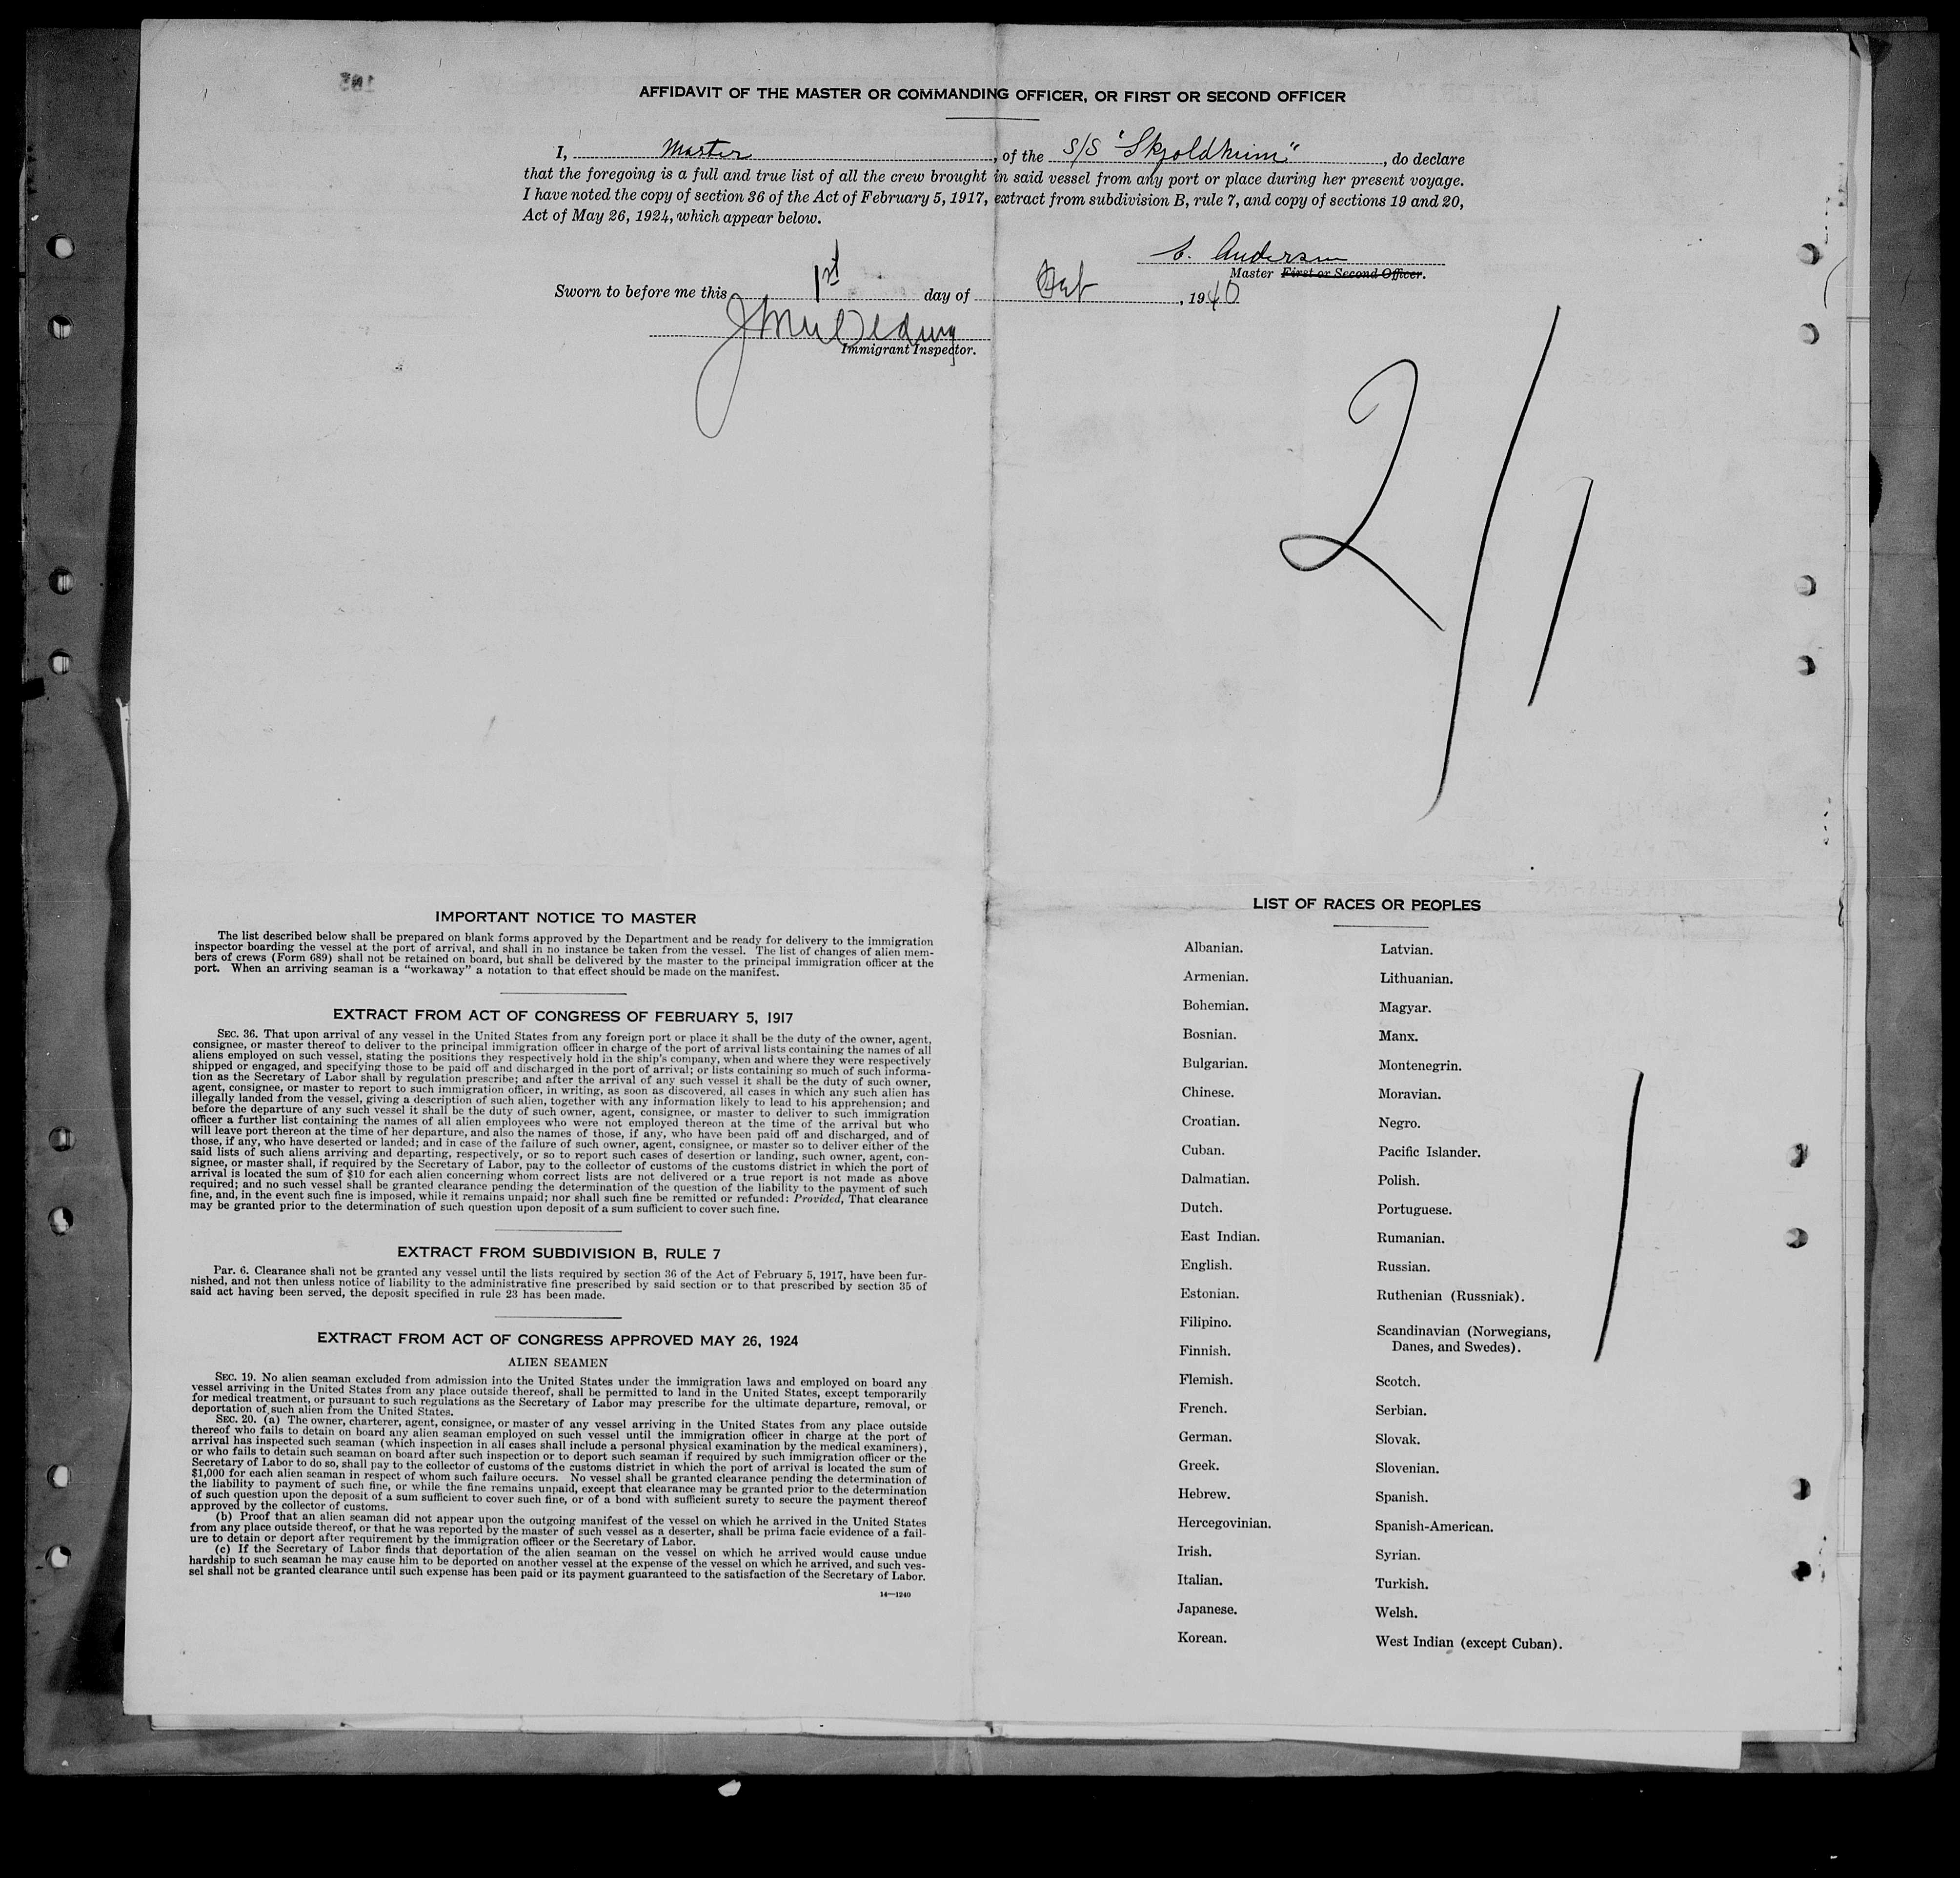 AFFIDAVIT OF THE MASTER OR COMMANDING OFFICER, OR FIRST OR SECOND OFFICER
I, Master, of the S/S "Skjoldheim", do declare
that the foregoing is a full and true list of all the crew brought in said vessel from any port or place during her present voyage.
I have noted the copy of section 36 of the Act of February 5, 1917, extract from subdivision B, rule 7, and copy of sections 19 and 20,
Act of May 26, 1924, which appear below.
Andersen
Master First or Second Officer.
Sworn to before me this 1st day of , 1940
Immigrant Inspector.
2/1
IMPORTANT NOTICE TO MASTER
The list described below shall be prepared on blank forms approved by the Department and be ready for delivery to the immigration
inspector boarding the vessel at the port of arrival, and shall in no instance be taken from the vessel. The list of changes of alien mem-
bers of crews (Form 689) shall not be retained on board, but shall be delivered by the master to the principal immigration officer at the
port. When an arriving seaman is a "workaway" a notation to that effect should be made on the manifest.
EXTRACT FROM ACT OF CONGRESS OF FEBRUARY 5, 1917
SEC. 36. That upon arrival of any vessel in the United States from any foreign port or place it shall be the duty of the owner, agent,
consignee, or master thereof to deliver to the principal immigration officer in charge of the port of arrival lists containing the names of all
aliens employed on such vessel, stating the positions they respectively hold in the ship's company, when and where they were respectively
shipped or engaged, and specifying those to be paid off and discharged in the port of arrival; or lists containing so much of such informa-
tion as the Secretary of Labor shall by regulation prescribe; and after the arrival of any such vessel it shall be the duty of such owner,
agent, consignee, or master to report to such immigration officer, in writing, as soon as discovered, all cases in which any such alien has
illegally landed from the vessel, giving a description of such alien, together with any information likely to lead to his apprehension; and
before the departure of any such vessel it shall be the duty of such owner, agent, consignee, or master to deliver to such immigration
officer a further list containing the names of all alien employees who were not employed thereon at the time of the arrival but who
will leave port thereon at the time of her departure, and also the names of those, if any, who have been paid off and discharged, and of
those, if any, who have deserted or landed; and in case of the failure of such owner, agent, consignee, or master so to deliver either of the
said lists of such aliens arriving and departing, respectively, or so to report such cases of desertion or landing, such owner, agent, con-
signee, or master shall, if required by the Secretary of Labor, pay to the collector of customs of the customs district in which the port of
arrival is located the sum of $10 for each alien concerning whom correct lists are not delivered or a true report is not made as above
required; and no such vessel shall be granted clearance pending the determination of the question of the liability to the payment of such
fine, and, in the event such fine is imposed, while it remains unpaid; nor shall such fine be remitted or refunded: Provided, That clearance
may be granted prior to the determination of such question upon deposit of a sum sufficient to cover such fine.
EXTRACT FROM SUBDIVISION B, RULE 7
Par. 6. Clearance shall not be granted any vessel until the lists required by section 36 of the Act of February 5, 1917, have been fur-
nished, and not then unless notice of liability to the administrative fine prescribed by said section or to that prescribed by section 35 of
said act having been served, the deposit specified in rule 23 has been made.
EXTRACT FROM ACT OF CONGRESS APPROVED MAY 26, 1924
ALIEN SEAMEN
SEC. 19. No alien seaman excluded from admission into the United States under the immigration laws and employed on board any
vessel arriving in the United States from any place outside thereof, shall be permitted to land in the United States, except temporarily
for medical treatment, or pursuant to such regulations as the Secretary of Labor may prescribe for the ultimate departure, removal, or
deportation of such alien from the United States.
SEC. 20. (a) The owner, charterer, agent, consignee, or master of any vessel arriving in the United States from any place outside
thereof who fails to detain on board any alien seaman employed on such vessel until the immigration officer in charge at the port of
arrival has inspected such seaman (which inspection in all cases shall include a personal physical examination by the medical examiners),
or who fails to detain such seaman on board after such inspection or to deport such seaman if required by such immigration officer or the
Secretary of Labor to do so, shall pay to the collector of customs of the customs district in which the port of arrival is located the sum of
$1,000 for each alien seaman in respect of whom such failure occurs. No vessel shall be granted clearance pending the determination of
the liability to payment of such fine, or while the fine remains unpaid, except that clearance may be granted prior to the determination
of such question upon the deposit of a sum sufficient to cover such fine, or of a bond with sufficient surety to secure the payment thereof
approved by the collector of customs.
(b) Proof that an alien seaman did not appear upon the outgoing manifest of the vessel on which he arrived in the United States
from any place outside thereof, or that he was reported by the master of such vessel as a deserter, shall be prima facie evidence of a fail-
ure to detain or deport after requirement by the immigration officer or the Secretary of Labor.
(c) If the Secretary of Labor finds that deportation of the alien seaman on the vessel on which he arrived would cause undue
hardship to such seaman he may cause him to be deported on another vessel at the expense of the vessel on which he arrived, and such ves-
sel shall not be granted clearance until such expense has been paid or its payment guaranteed to the satisfaction of the Secretary of Labor.
14—1240
LIST OF RACES OR PEOPLES
Albanian.
Armenian.
Bohemian.
Bosnian.
Bulgarian.
Chinese.
Croatian.
Cuban.
Dalmatian.
Dutch.
East Indian.
English.
Estonian.
Filipino.
Finnish.
Flemish.
French.
German.
Greek.
Hebrew.
Hercegovinian.
Irish.
Italian.
Japanese.
Korean.
Latvian.
Lithuanian.
Magyar.
Manx.
Montenegrin.
Moravian.
Negro.
Pacific Islander.
Polish.
Portuguese.
Rumanian.
Russian.
Ruthenian (Russniak).
Scandinavian (Norwegians,
Danes, and Swedes).
Scotch.
Serbian.
Slovak.
Slovenian.
Spanish.
Spanish-American.
Syrian.
Turkish.
Welsh.
West Indian (except Cuban).